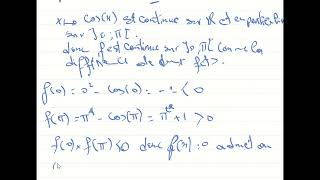 x ↦ cos(x) est continue sur ℝ et en particulier
sur ]0;π[.
donc f est continue sur ]0;π[ comme la
différence de deux fct.
f(0) = 0² - cos(0) = -1 < 0
f(π) = π² - cos(π) = π² + 1 > 0
f(0) × f(π) < 0 donc f(x) = 0 admet au